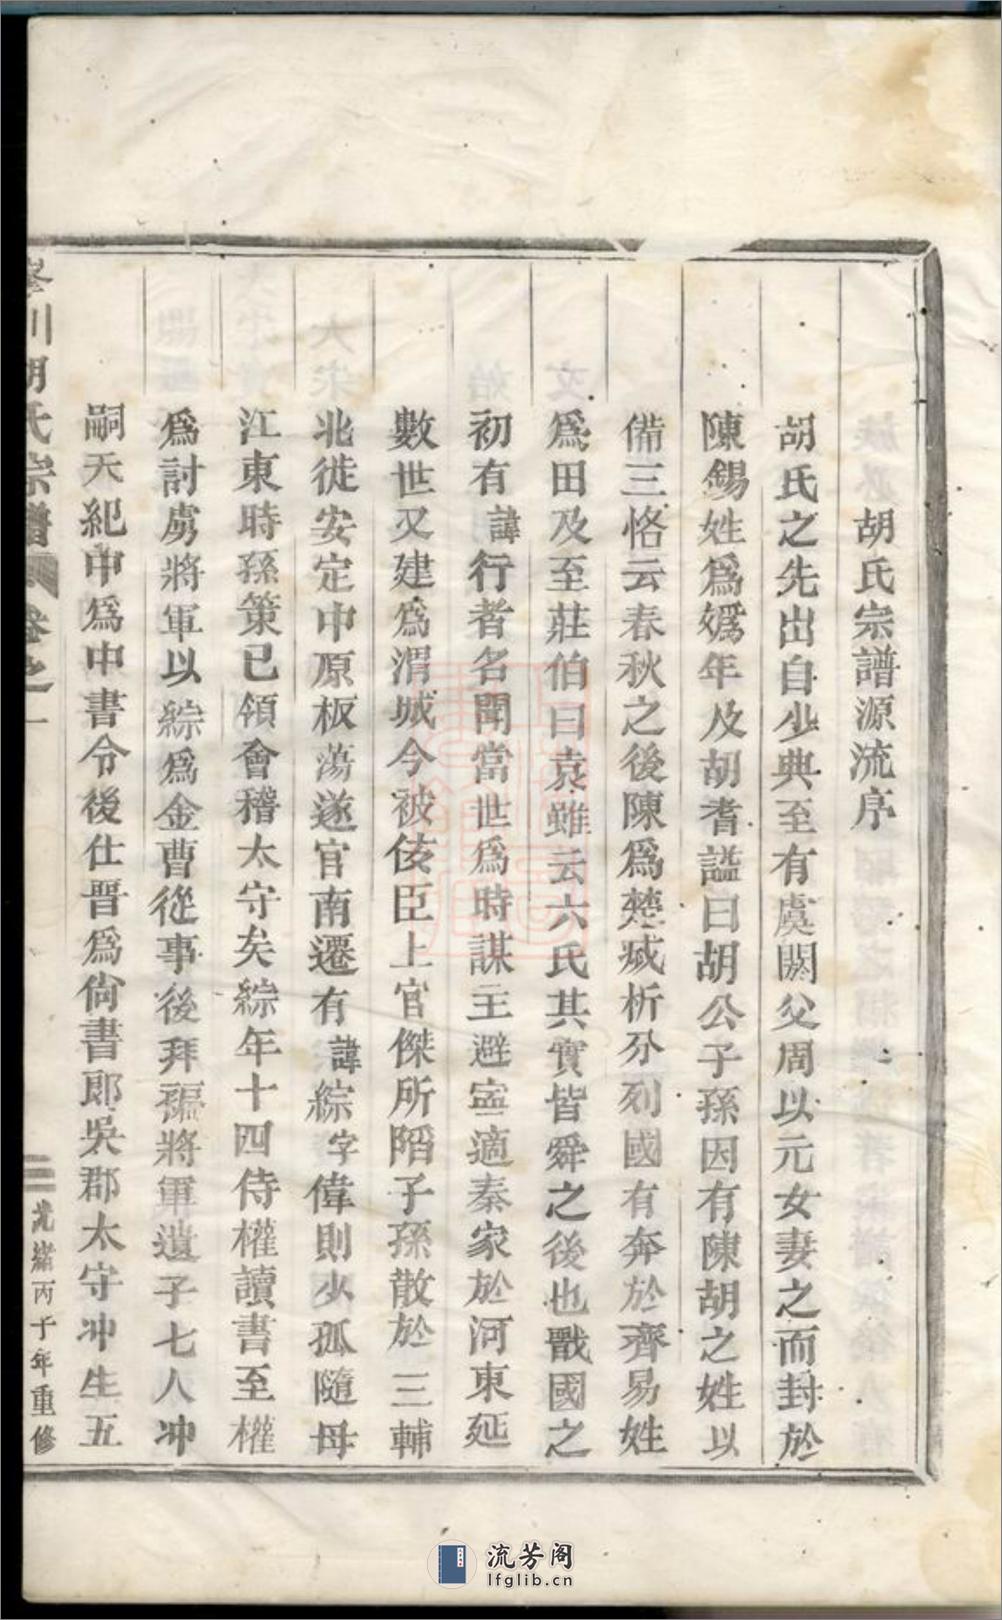 胡氏宗譜源流序
胡氏之先出自少典至有虞閼父周以元女妻之而封於
陳錫姓爲嬀年及胡耆謚曰胡公子孫因有陳胡之姓以
備三恪云春秋之後陳爲楚烕析分列國有奔於齊易姓
爲田及至莊伯曰袁雖云六氏其實皆舜之後也戰國之
初有諱行者名聞當世爲時謀主避寍適秦家於河東延
數世又建爲渭城令被佞臣上官傑所陷子孫散於三輔
北徙安定中原板蕩遂官南遷有諱綜字偉則少孤隨母
江東時孫策已領會稽太守矣綜年十四侍權讀書至權
爲討虜將軍以綜爲金曹從事後拜褊將軍遺子七人冲
嗣天紀中爲中書令後仕晋爲尙書郎吳郡太守冲生五
川胡氏宗譜 卷之一
光緒丙子年重修
流芳阁
lfglib.cn